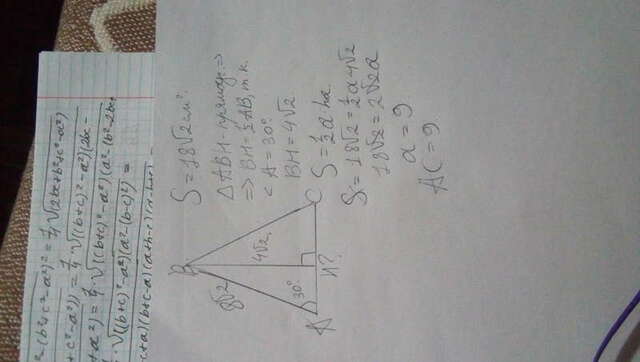 ²-(b²+c²-a²)² = 1/4 √(2bc+b²+c²-a²)
+c²-a²)) = 1/4 · √((b+c)²-a²)(2bc-
+a²) = 1/4 · √((b+c)²-a²)(a²-(b²-2bc+
√((b+c)²-a²)(a²-(b-c)²) =
+c+a)(b+c-a)(a+b-c)(a-b+c)
B
8√2
4√2
30°
A
H?
C
S = 18√2 см²
△ABH - прямоуг. ⇒
⇒ BH = 1/2 AB, т.к.
< A = 30°
BH = 4√2
S = 1/2 a · ha
S = 18√2 = 1/2 a 4√2
18√2 = 2√2a
a = 9
AC = 9